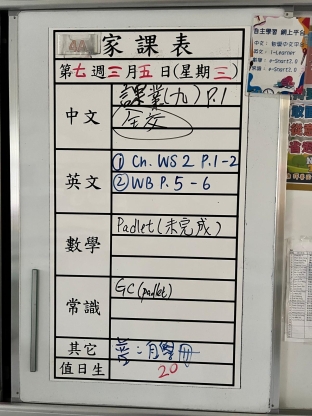 4A
家課表
第七週三月五日(星期三)
中文
課業(九) P.1
全交
英文
① Ch. WS 2 P.1-2
② WB P.5-6
數學
Padlet(未完成)
常識
GC(padlet)
其它
值日生
20
自主學習 網上平台
英文：i-Learner